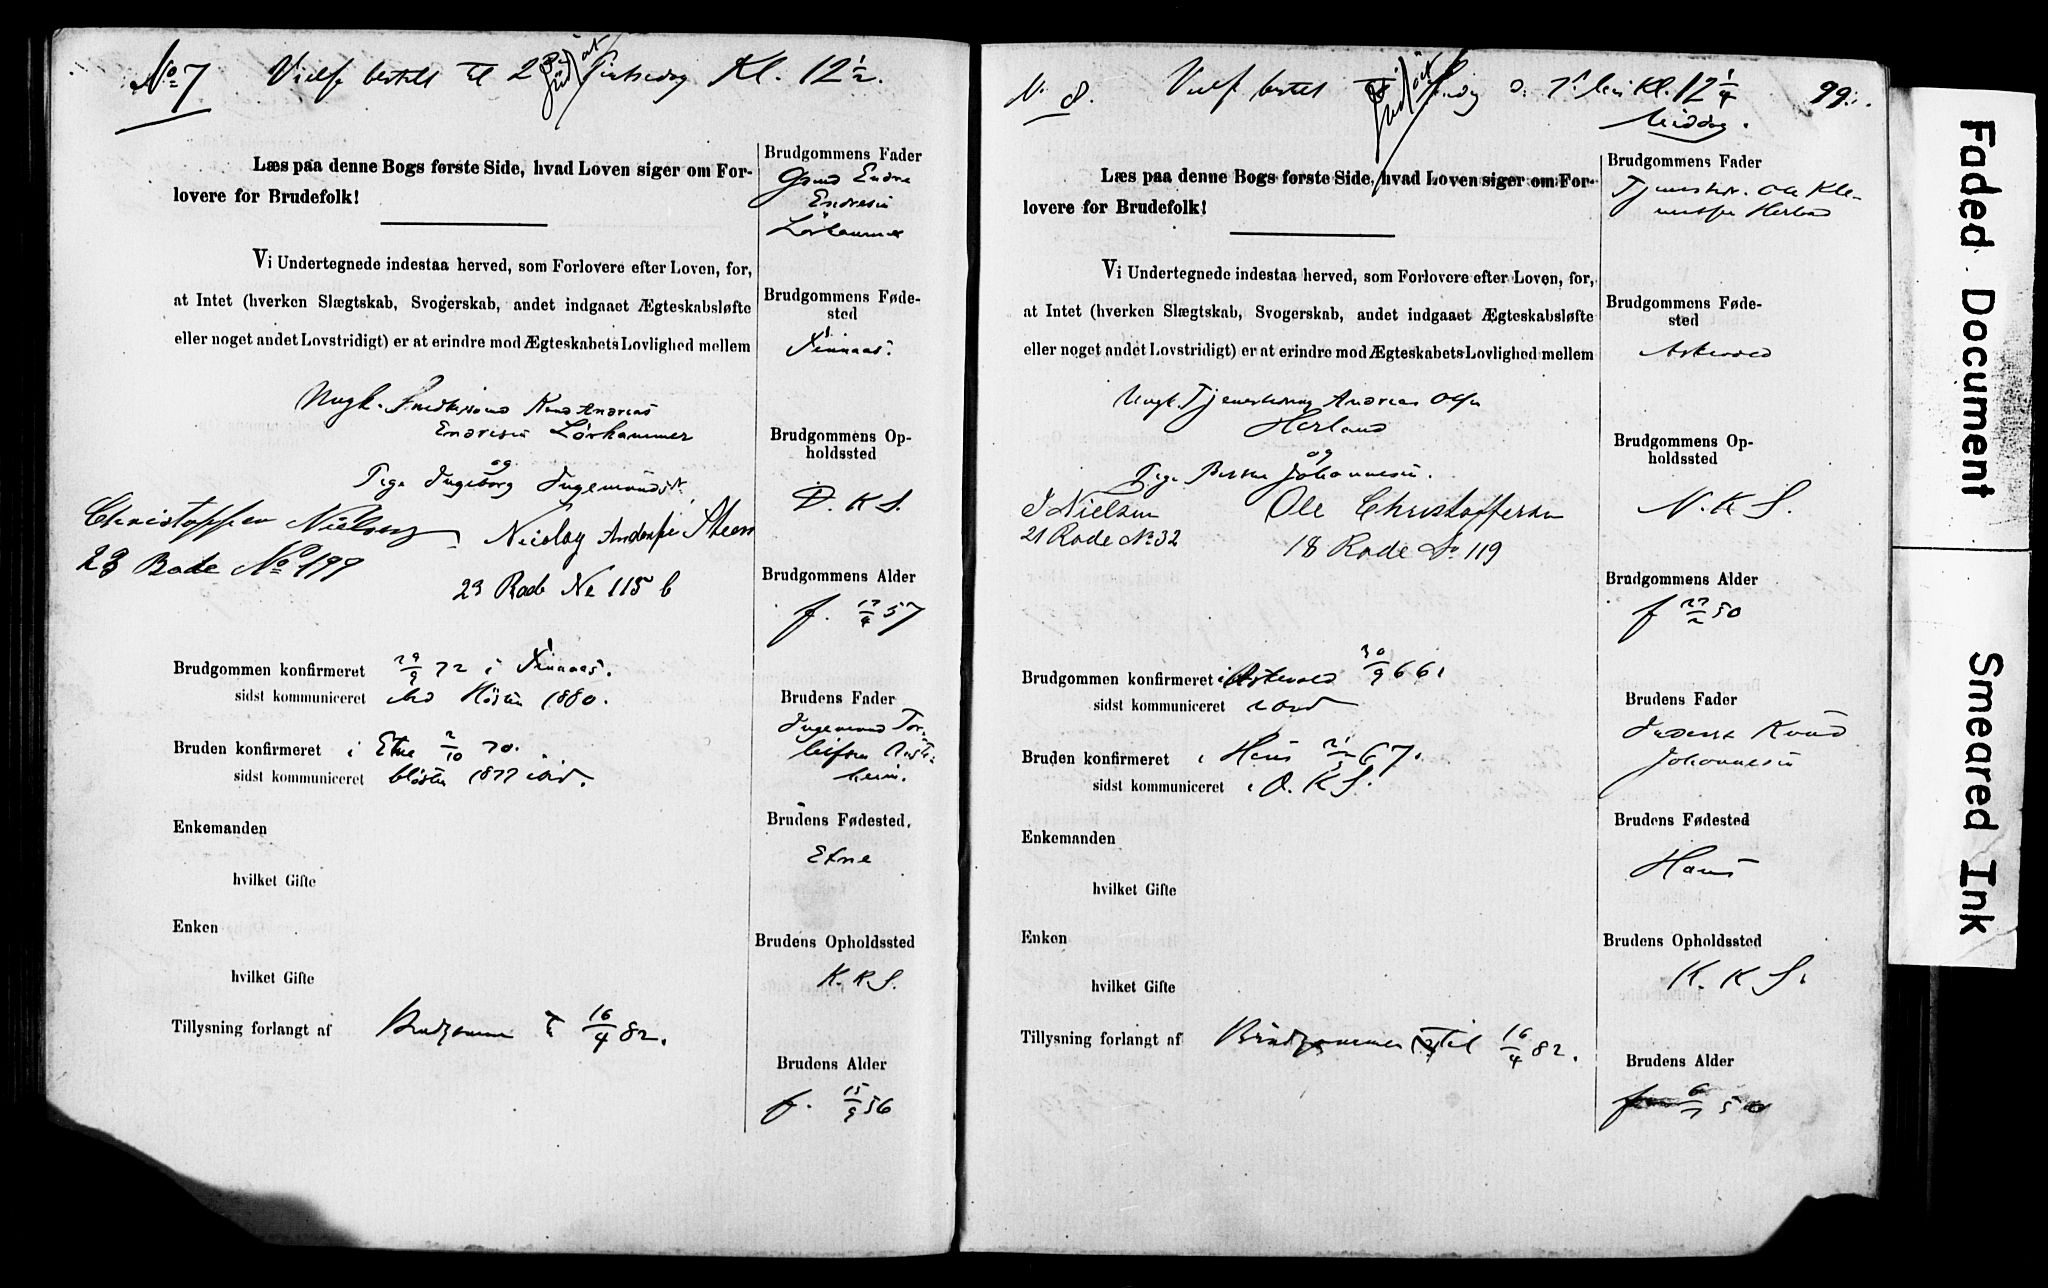 No 7 Vielse bestilt til 2den Kl. 12 1/2.
Læs paa denne Bogs første Side, hvad Loven siger om For-
lovere for Brudefolk!
Vi Undertegnede indestaa herved, som Forlovere efter Loven, for,
at Intet (hverken Slægtskab, Svogerskab, andet indgaaet Ægteskabsløfte
eller noget andet Lovstridigt) er at erindre mod Ægteskabets Lovlighed mellem
Ungk. Knud Andreas
Endresen Lørhammer
og
Pige Ingeborg Ingemundsdr.
Christopher Nielsen
23 Rode No 199
Nicolay Andersen Steen
23 Rode No 115 b
Brudgommen konfirmeret 29/9 72 i Finnaas.
sidst kommuniceret ibid Høsten 1880.
Bruden konfirmeret i Etne 2/10 70.
sidst kommuniceret Høsten 1877 ibid.
Enkemanden
hvilket Gifte
Enken
hvilket Gifte
Tillysning forlangt af Brudgommen til 16/4 82.
Brudgommens Fader
Gmd Endre
Endresen
Lørhammer
Brudgommens Føde-
sted
Finnaas.
Brudgommens Op-
holdssted
D. K. S.
Brudgommens Alder
f. 17/4 57
Brudens Fader
Ingemund Tor-
leifsen
heim.
Brudens Fødested.
Etne
Brudens Opholdssted
K. K. S.
Brudens Alder
f. 15/9 56
N. 8. Vielse bestilt Kl. 12 1/4 99.
Middag.
Læs paa denne Bogs første Side, hvad Loven siger om For-
lovere for Brudefolk!
Vi Undertegnede indestaa herved, som Forlovere efter Loven, for,
at Intet (hverken Slægtskab, Svogerskab, andet indgaaet Ægteskabsløfte
eller noget andet Lovstridigt) er at erindre mod Ægteskabets Lovlighed mellem
Ungk. Tjenestedreng Andreas Olsen
Herland
og
Pige Johannesen.
J Nielsen
21 Rode No 32
Ole Christoffersen
18 Rode No 119
Brudgommen konfirmeret i Askevold 30/9 66.
sidst kommuniceret ibid
Bruden konfirmeret i Haus 21/3 67.
sidst kommuniceret i D. K. S.
Enkemanden
hvilket Gifte
Enken
hvilket Gifte
Tillysning forlangt af Brudgommen til 16/4 82.
Brudgommens Fader
Ole Kle-
mentsen Herland
Brudgommens Føde-
sted
Askevold
Brudgommens Op-
holdssted
N. K. S.
Brudgommens Alder
f 27/2 50
Brudens Fader
Knud
Johannesen
Brudens Fødested
Haus
Brudens Opholdssted
K. K. S.
Brudens Alder
f 6/7 50
Faded Document
Smeared Ink